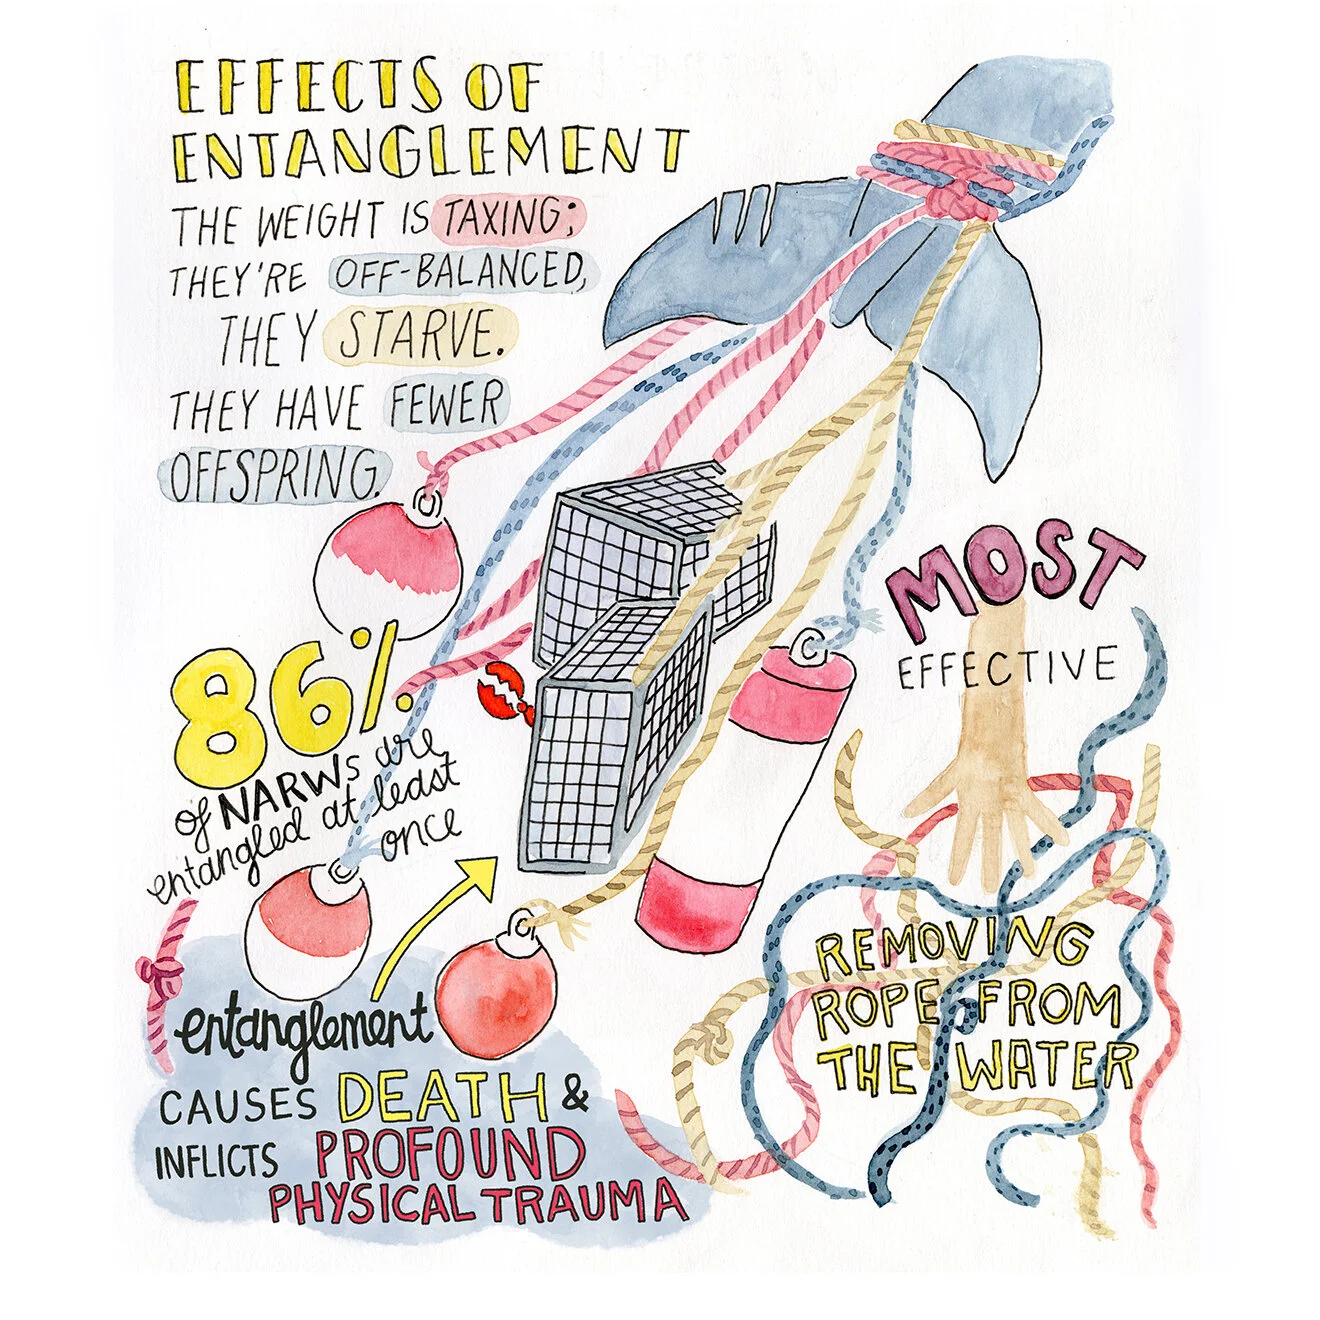 EFFECTS OF
ENTANGLEMENT
THE WEIGHT IS TAXING;
THEY'RE OFF-BALANCED,
THEY STARVE.
THEY HAVE FEWER
OFFSPRING.
86%
of NARWs are
entangled at least
once
entanglement
CAUSES DEATH &
INFLICTS PROFOUND
PHYSICAL TRAUMA
MOST
EFFECTIVE
REMOVING
ROPE FROM
THE WATER